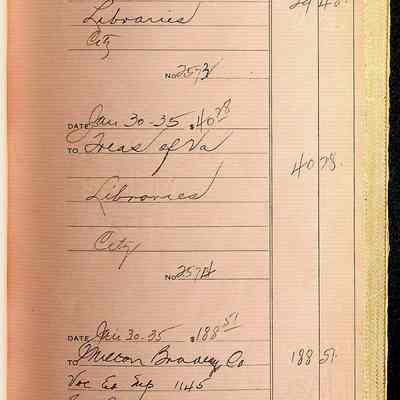 Libraries
City
No 2573
DATE Jan 30-35 $40 78
TO Treas of Va
40 78.
Libraries
City
No 2574
DATE Jan 30-35 $188 51
TO Milton Bradley Co 188 51.
Voc Ed Sup 1145